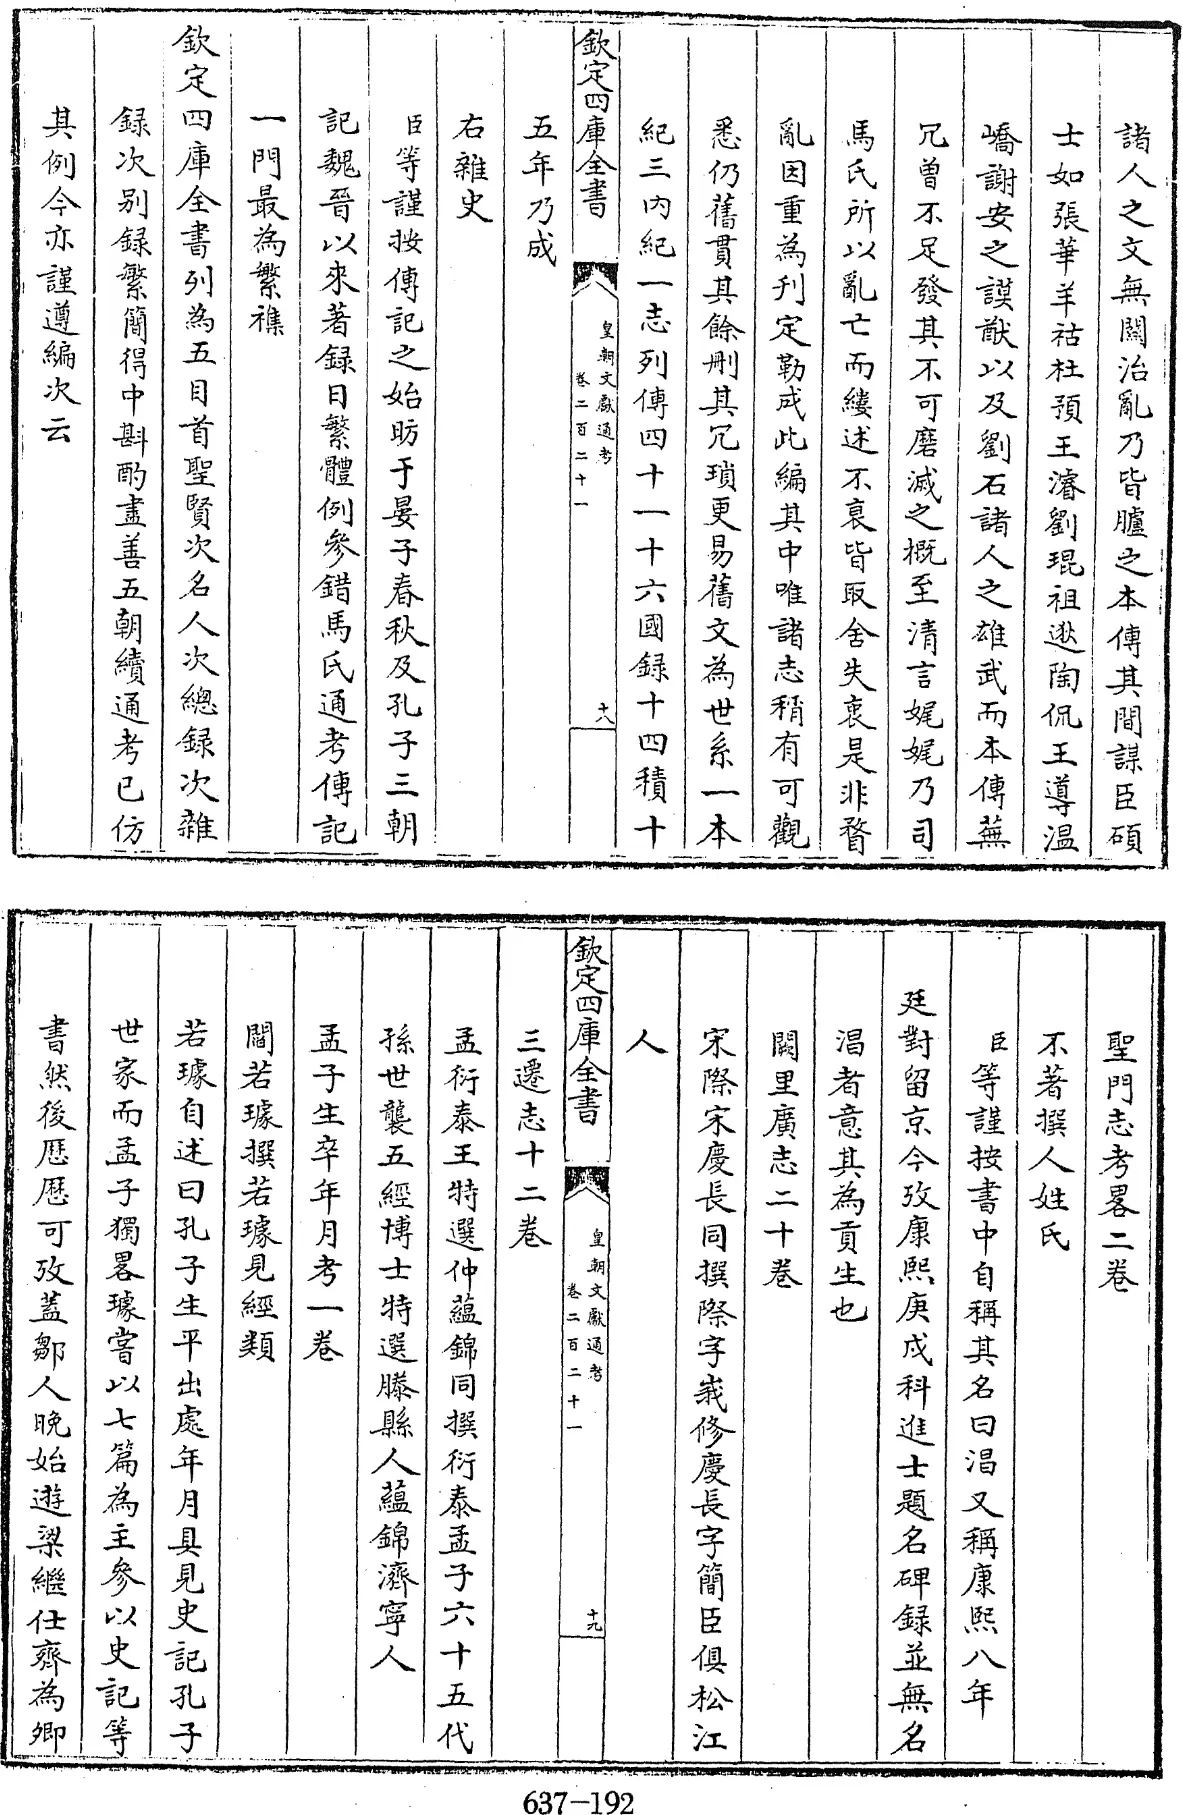 諸人之文無闗治亂乃皆臚之本傳其間謀臣碩
士如張華羊祜杜預王濬劉琨祖逖陶侃王導温
嶠謝安之謨猷以及劉石諸人之雄武而本傳蕪
冗曾不足發其不可磨滅之概至清言娓娓乃司
馬氏所以亂亡而縷述不裒皆取舍失衷是非瞀
亂因重為刋定勒成此編其中唯諸志稍有可觀
悉仍舊貫其餘刪其冗瑣更易舊文為世系一本
紀三内紀一志列傳四十一十六國録十四積十
欽定四庫全書
皇朝文獻通考
卷二百二十一
十八
五年乃成
右雜史
臣等謹按傳記之始昉于晏子春秋及孔子三朝
記魏晉以來著録日繁體例參錯馬氏通考傳記
一門最為繁襍
欽定四庫全書列為五目首聖賢次名人次總録次雜
録次别録繁簡得中斟酌盡善五朝續通考已仿
其例今亦謹遵編次云
聖門志考畧二卷
不著撰人姓氏
臣等謹按書中自稱其名曰淐又稱康熙八年
廷對留京今攷康熙庚戌科進士題名碑録並無名
淐者意其為貢生也
闕里廣志二十卷
宋際宋慶長同撰際字峩修慶長字簡臣俱松江
人
欽定四庫全書
皇朝文獻通考
卷二百二十一
十九
三遷志十二卷
孟衍泰王特選仲藴錦同撰衍泰孟子六十五代
孫世襲五經博士特選滕縣人藴錦濟寧人
孟子生卒年月考一卷
閻若璩撰若璩見經類
若璩自述曰孔子生平出處年月具見史記孔子
世家而孟子獨畧璩嘗以七篇為主參以史記等
書然後歴歴可攷蓋鄒人晩始遊梁繼仕齊為卿
637-192